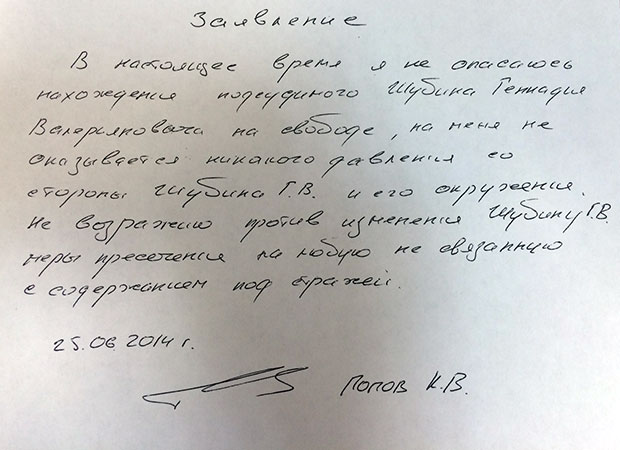 Заявление
В настоящее время я не опасаюсь
нахождения подсудимого Шубина Геннадия
Валерьяновича на свободе, на меня не
оказывается никакого давления со
стороны Шубина Г.В. и его окружения.
Не возражаю против изменения Шубину Г.В.
меры пресечения на любую не связанную
с содержанием под стражей.
25.06.2014 г.
Попов К.В.